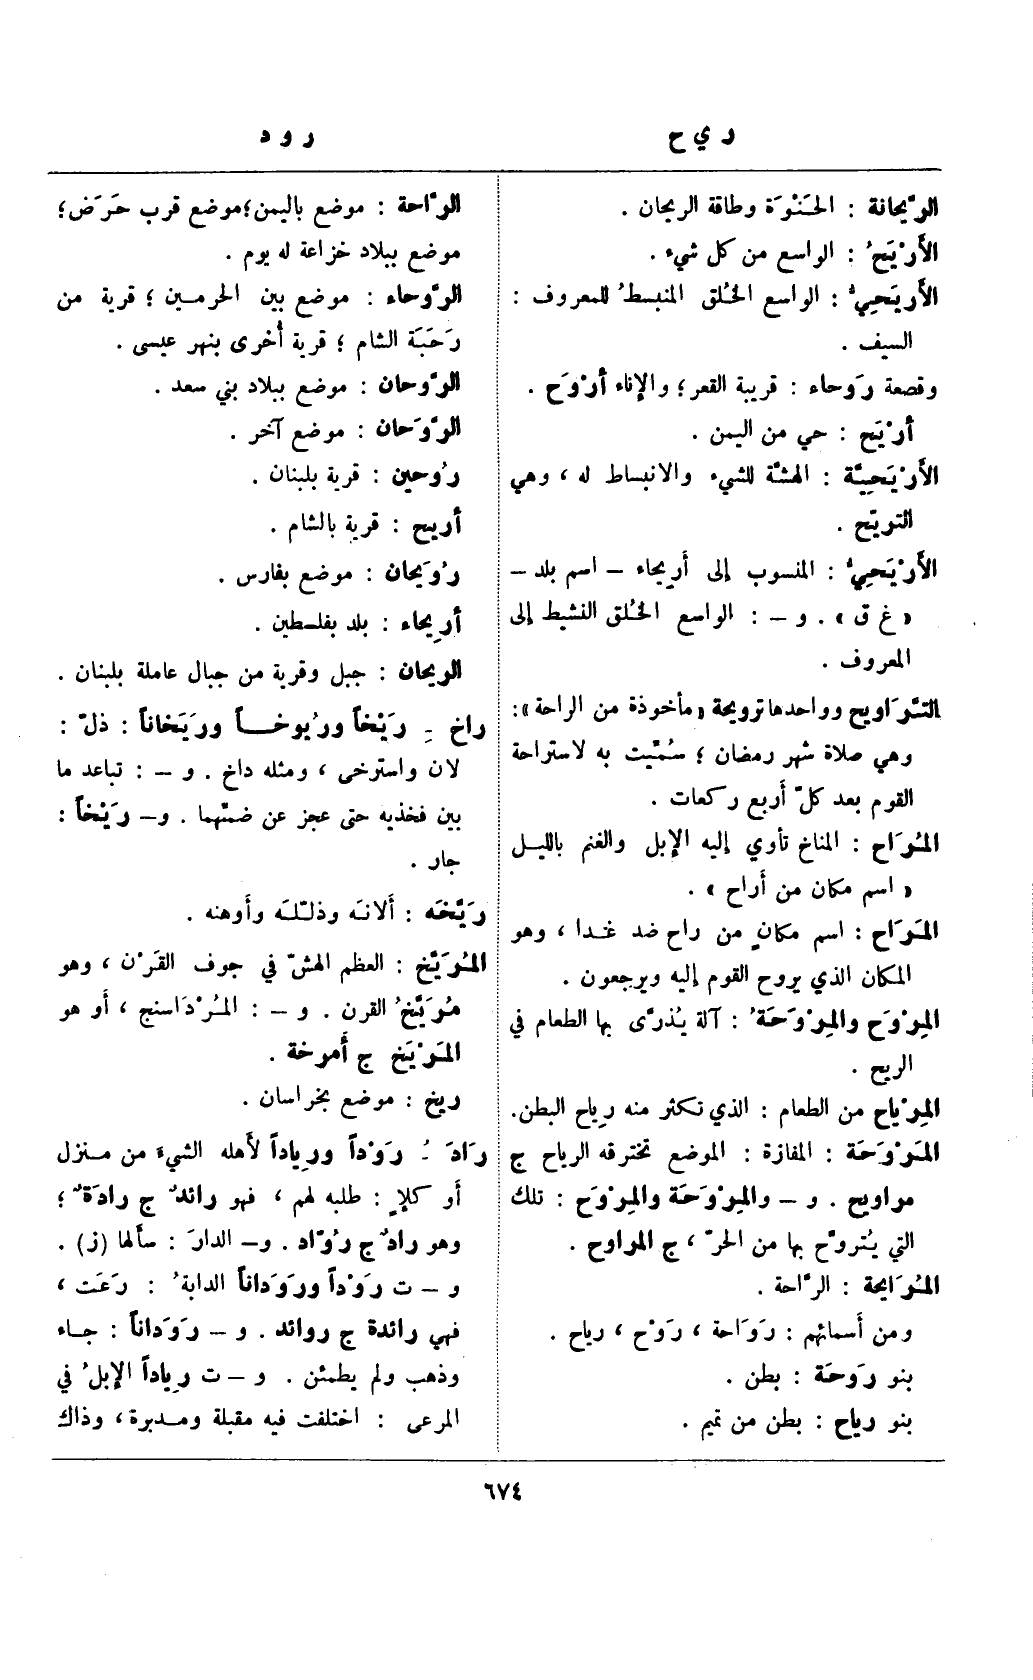 ر ي ح
ر و د
الرَّيحانة : الحَنْوَة وطاقة الريحان .
الأَرْيَحُ : الواسع من كل شيء .
الأَريَحِيُّ : الواسع الخُلق المنبسطُ للمعروف :
السيف .
وقصعة رَوحاء : قريبة القعر ؛ والإناء أَرْوَح .
أَرْيَح : حي من اليمن .
الأَرْيَحِيَّة : الهشَّة للشيء والانبساط له ، وهي
التريّح .
الأَرْيَحِيُّ : المنسوب إلى أَرِيحاء – اسم بلد –
« غ ق » . و – : الواسع الخُلق النشيط إلى
المعروف .
التَّرَاويح وواحدها ترويحة « مأخوذة من الراحة » :
وهي صلاة شهر رمضان ؛ سُمّيت به لاستراحة
القوم بعد كلّ أربع ركعات .
المُرَاح : المناخ تأوي إليه الإبل والغنم بالليل
« اسم مكان من أراح » .
المَرَاح : اسم مكانٍ من راح ضد غدا ، وهو
المكان الذي يروح القوم إليه ويرجعون .
المِرْوَح والمِرْوَحَةُ : آلة يُذرّى بها الطعام في
الريح .
المِرْياح من الطعام : الذي تكثر منه رياح البطن .
المَرْوَحَة : المفازة : الموضع تخترقه الرياح ج
مراويح . و – والمِرْوَحَة والمِرْوَح : تلك
التي يُتروّح بها من الحرّ ، ج المراوح .
المُرَايحة : الرَّاحة .
ومن أسمائهم : رَوَاحة ، رَوْح ، رياح .
بنو رَوحَة : بطن .
بنو رياح : بطن من تميم .
الرَّاحة : موضع باليمن ؛ موضع قرب حَرَض ؛
موضع ببلاد خزاعة له يوم .
الرَّوحاء : موضع بين الحرمين ؛ قرية من
رَحَبَة الشام ؛ قرية أُخرى بنهر عيسى .
الرَّوحان : موضع ببلاد بني سعد .
الرَّوَحان : موضع آخر .
رُوحين : قرية بلبنان .
أريح : قرية بالشام .
رُوَيحان : موضع بفارس .
أَرِيحاء : بلد بفلسطين .
الريحان : جبل وقرية من جبال عاملة بلبنان .
راخ ِـ رَيْخاً ورُيوخاً ورَيَخاناً : ذلّ :
لان واسترخى ، ومثله داخ . و – : تباعد ما
بين فخذيه حتى عجز عن ضمّهما . و– رَيْخاً :
جار .
رَيَّخَه : أَلانَه وذلّلَه وأوهنه .
المُرَيَّخ : العظم الهشّ في جوف القَرْن ، وهو
مُرَيَّخُ القرن . و – : المُرْدَاسنج ، أو هو
المَرْيَخ ج أَمرخة .
ريخ : موضع بخراسان .
رَادَ ُـ رَوْداً ورِياداً لأهله الشيءَ من منزل
أو كلإٍ : طلبه لهم ، فهو رائدٌ ج رادَةٌ ؛
وهو رادٌ ج رُوّاد . و– الدارَ : سألها (ز) .
و – ت رَوْداً ورَوَدَاناً الدابةُ : رَعَت ،
فهي رائدة ج روائد . و – رَوَداناً : جاء
وذهب ولم يطمئن . و – ت رِياداً الإبلُ في
المرعى : اختلفت فيه مقبلة ومدبرة ، وذاك
٦٧٤